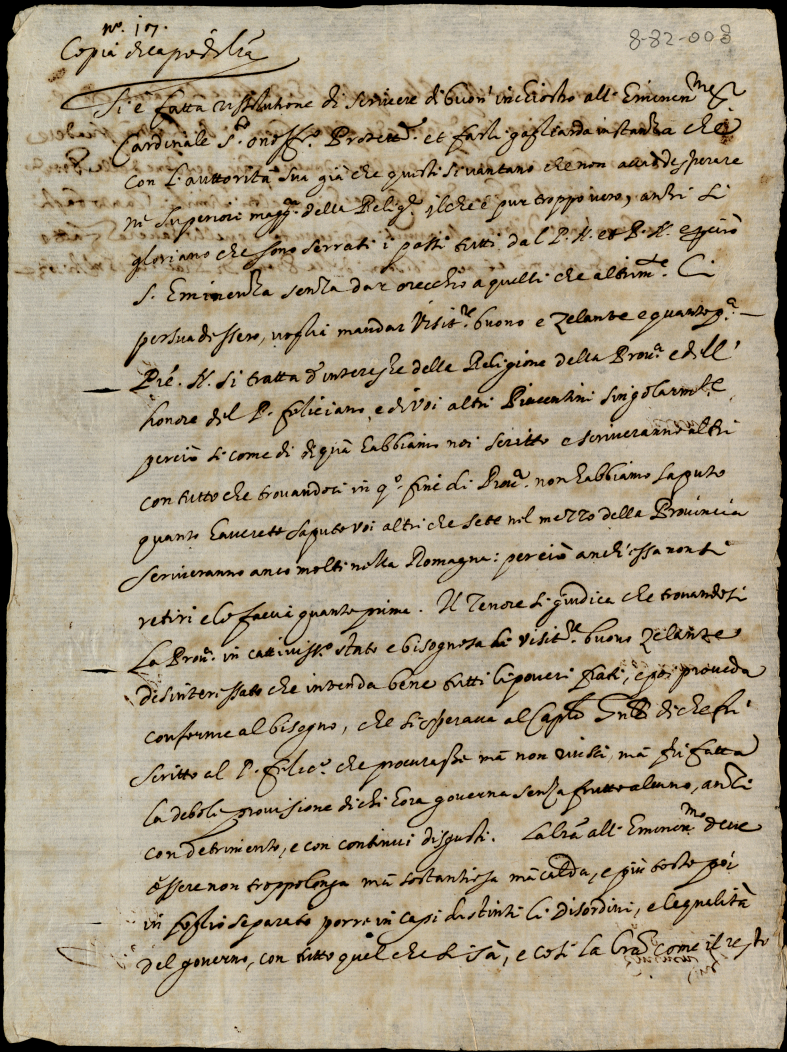 n.º 17.
8-82-008
Copia di capo di lrã
Si è fatta risolutione di scrivere di buon' inchiostro all' Eminen.mo
Cardinale S.t Onoff.o Protett.re et farli gagliarda instanza che
con l'auttorità sua già che questi si vantano che non
ne Superiori magg.ri della Relig.e ilche è pur troppo vero, anzi si
gloriano che sono serrati i passi tutti dal P. N. et P. N. e perciò
S. Eminenza senza dar orecchio a quelli che altrim.te Ci
persuadessero, vogli mandar Visit.re buono e zelante e quanto p.a
Pré. N. si tratta d'interesse della Religione della Prov.a e dell'
honore del P. feliciano, e di voi altri Piacentini singolarm.te
perciò si come di di quà habbiamo noi scritto e scriveranno altri
con tutto che trovandoci in q.o fine di Prov.a non habbiamo saputo
quanto haverete saputo voi altri che sete nel mezzo della Provincia
scriveranno anco molti nella Romagna: perciò anch'essa non si
retiri e lo facci quanto prima. Il Tenore si giudica che trovandosi
La Prov.a in cattiviss.o stato e bisognosa di visit.re buono zelante
disinteressato che intenda bene tutti li poveri frati, e poi proveda
conforme al bisogno, che si sperava al Caplo Gnãle di che fù
scritto al P. felic.o che procurasse mà non riuscì, mà fù fatta
la debole provisione di chi hora governa senza frutto alcuno, anzi
con detrimento, e con continui disgusti. La lrã all' Eminen.mo deve
essere non troppo longa mà sostantiosa mà calda, e più tosto poi
in foglio separato porre in capi distinti li disordini, e le qualità
del governo, con tutto quel che si sà, e così la lrã come il resto